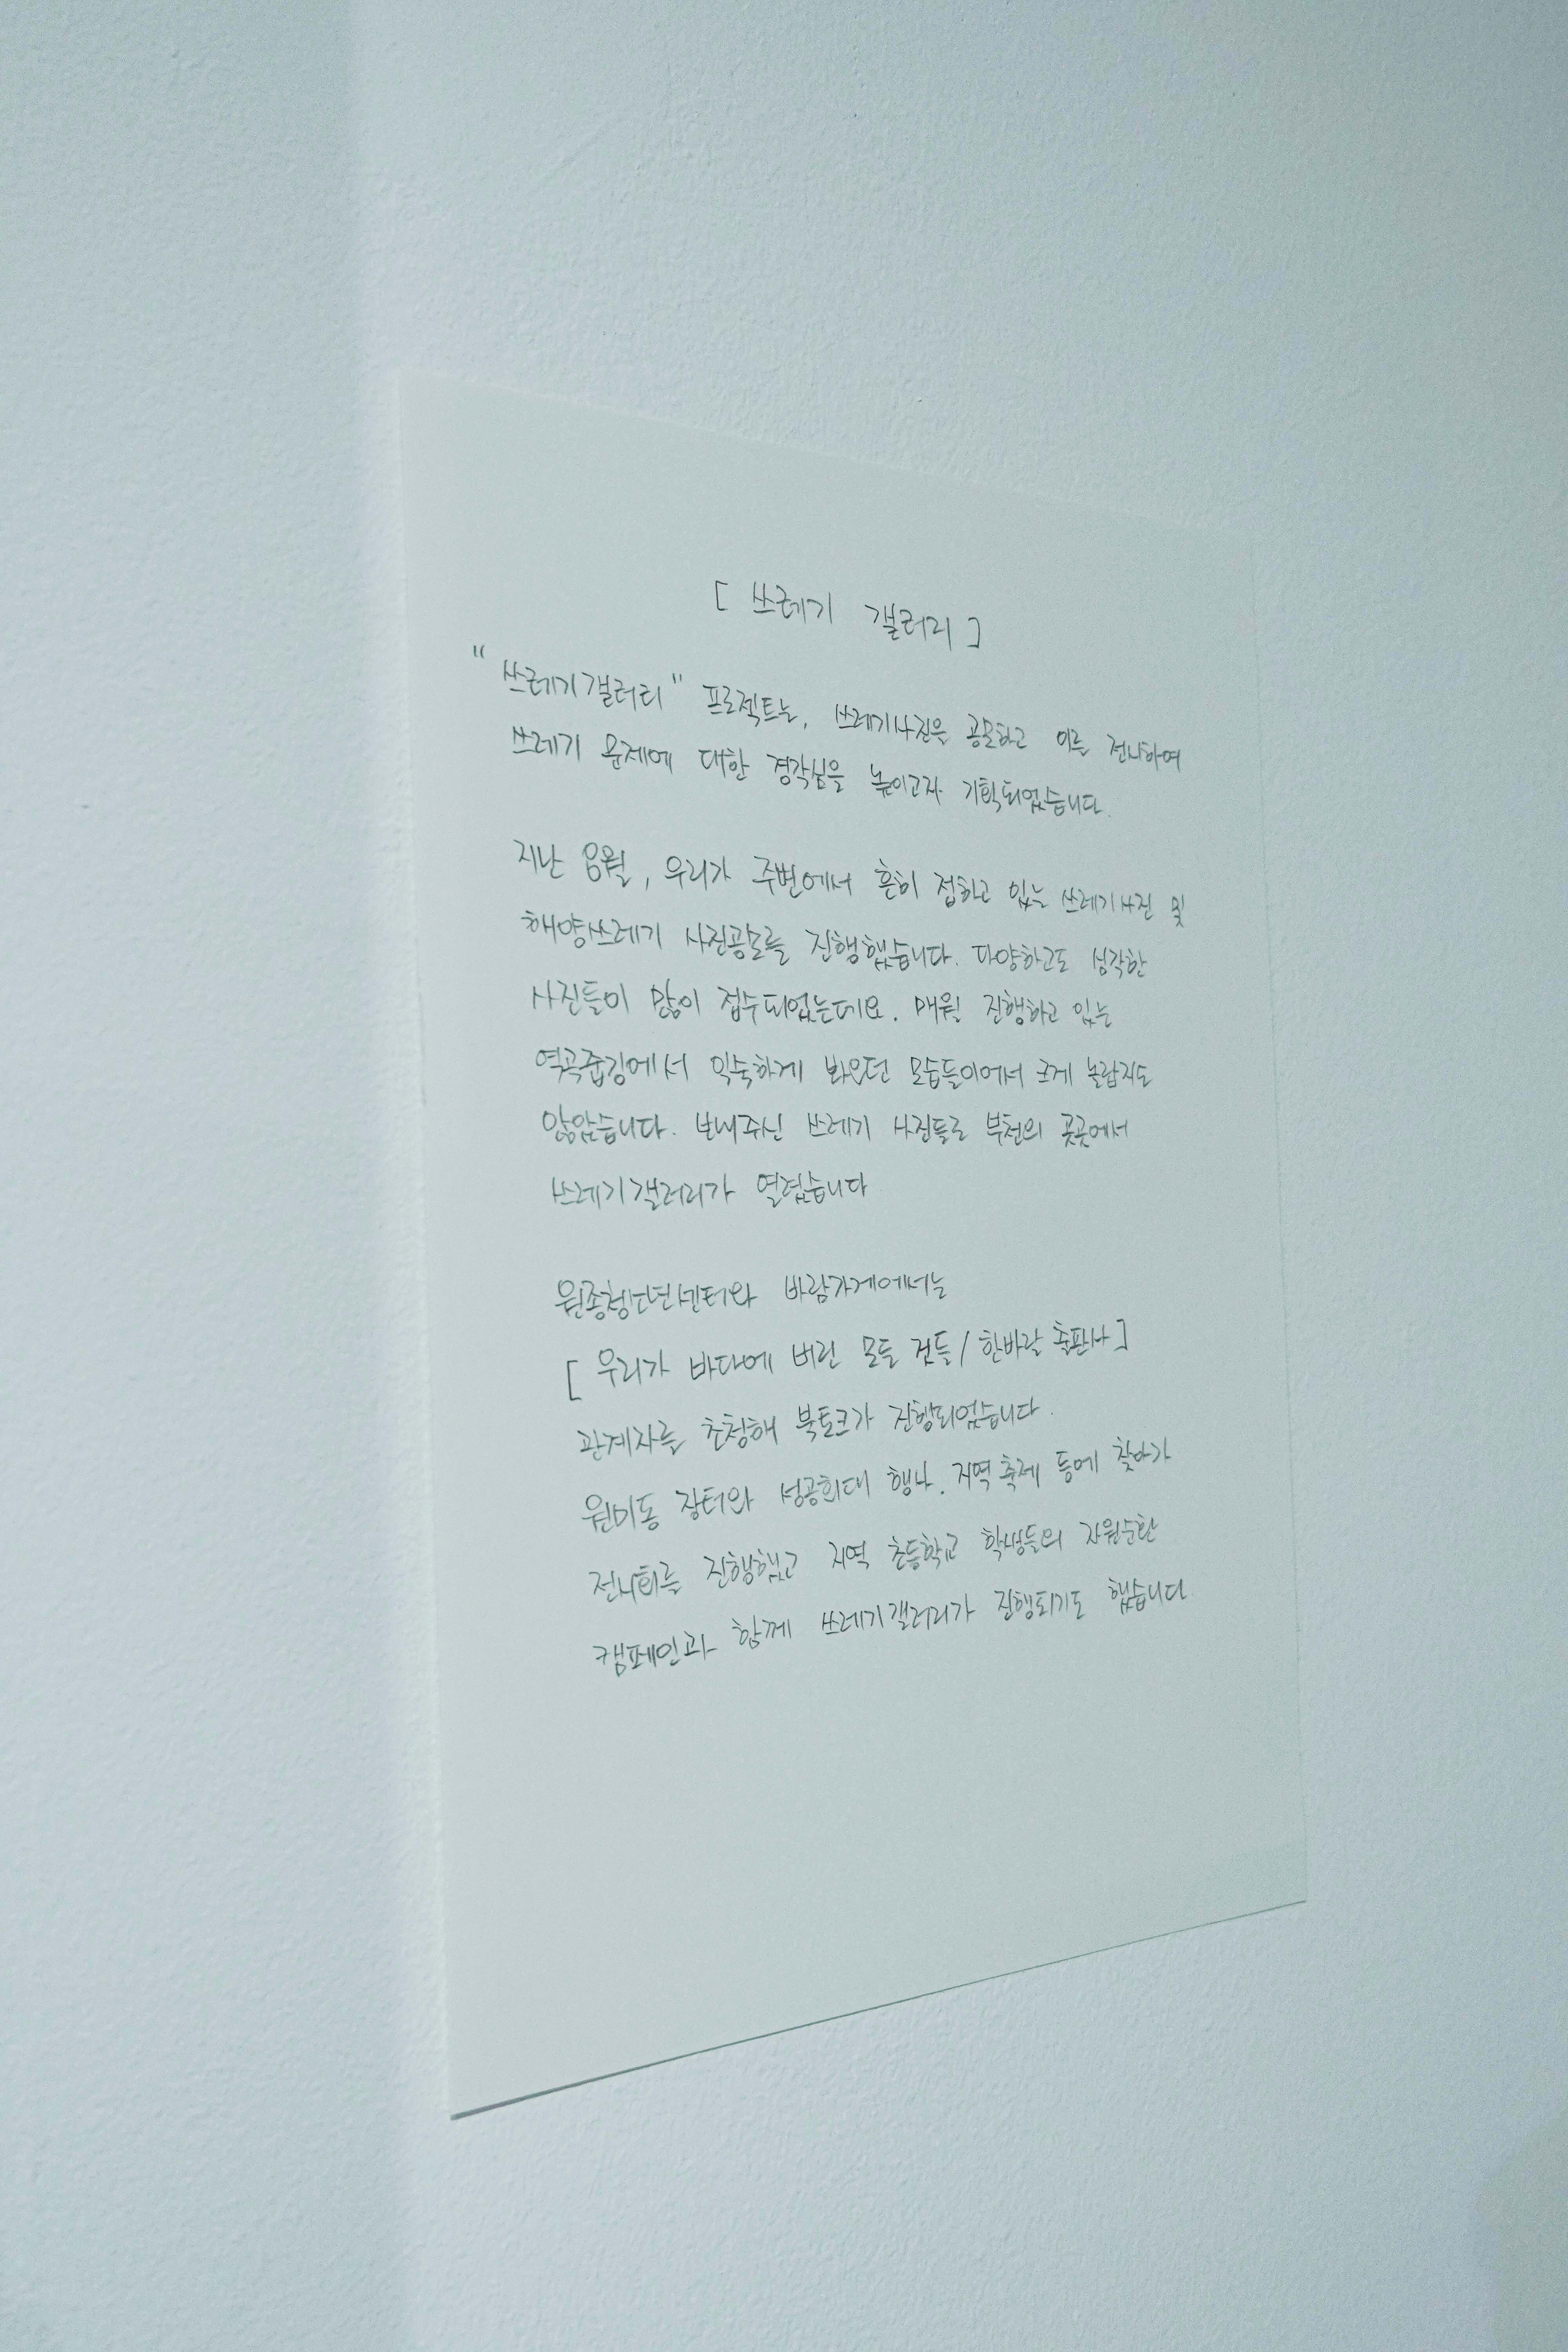 [ 쓰레기 갤러리 ]
"쓰레기갤러리" 프로젝트는, 쓰레기사진을 공모하고 이를 전시하여
쓰레기 문제에 대한 경각심을 높이고자 기획되었습니다.
지난 8월, 우리가 주변에서 흔히 접하고 있는 쓰레기사진 및
해양쓰레기 사진공모를 진행했습니다. 다양하고도 심각한
사진들이 많이 접수되었는데요. 매월 진행하고 있는
역곡줍깅에서 익숙하게 봐오던 모습들이어서 크게 놀랍지도
않았습니다. 보내주신 쓰레기 사진들로 부천의 곳곳에서
쓰레기갤러리가 열렸습니다
원종청소년센터와 바람가게에서는
[ 우리가 바다에 버린 모든 것들/한바랄 출판사]
관계자를 초청해 북토크가 진행되었습니다.
원미동 장터와 성공회대 행사. 지역축제 등에 찾아가
전시회를 진행했고 지역 초등학교 학생들의 자원순환
캠페인과 함께 쓰레기갤러리가 진행되기도 했습니다